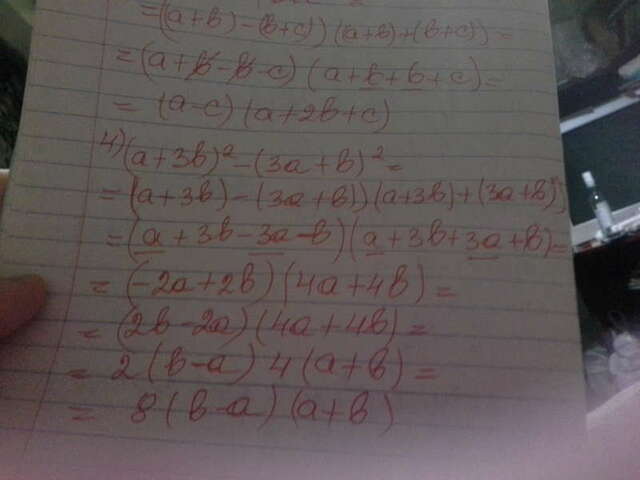 =(a+b)-(b+c))(a+b)+(b+c))=
=(a+b-b-c)(a+b+b+c)=
=(a-c)(a+2b+c)
4)(a+3b)²-(3a+b)²=
=(a+3b)-(3a+b))(a+3b)+(3a+b))
=(a+3b-3a-b)(a+3b+3a+b)=
=(-2a+2b)(4a+4b)=
=(2b-2a)(4a+4b)=
=2(b-a)4(a+b)=
=8(b-a)(a+b)